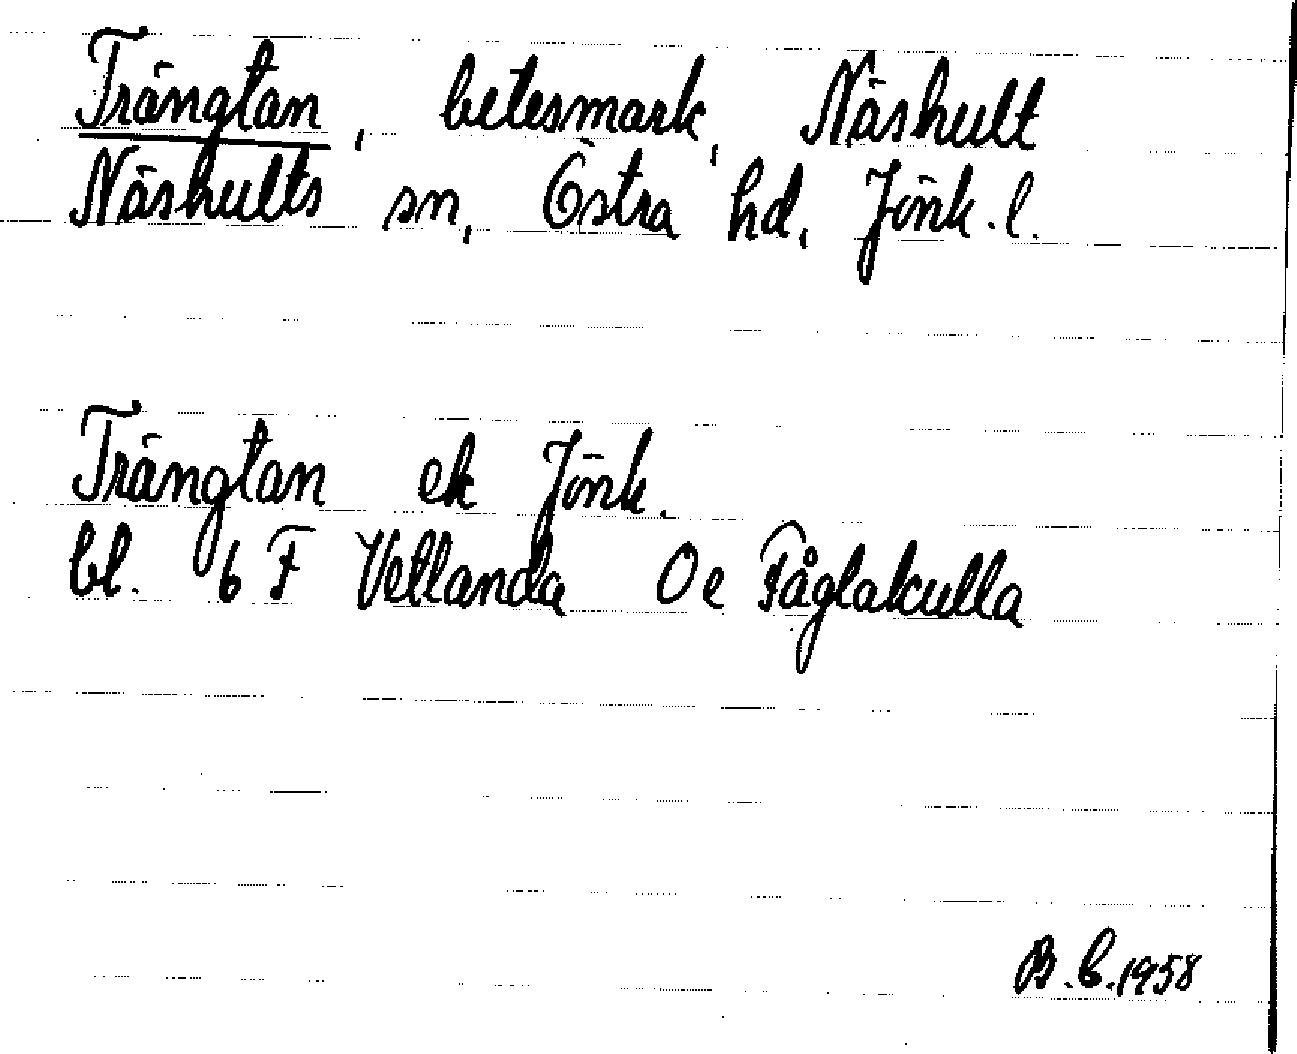 Trängtan, betesmark, Näshult
Näshults sn, Östra hd, Jönk. l.
Trängtan ek Jönk.
bl. 6 F Vetlanda 0e Fåglakulla
B.C. 1958